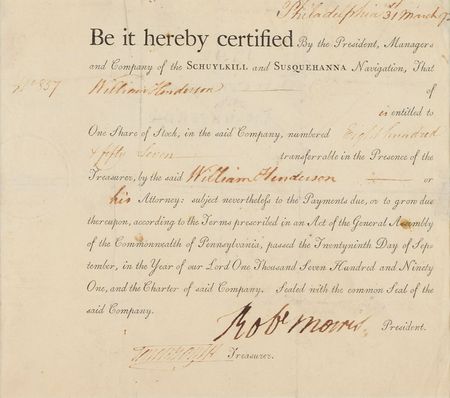 Philadelphia 31st March 179
Be it hereby certified By the President, Managers
and Company of the SCHUYLKILL and SUSQUEHANNA Navigation, That
No 857 William Henderson of
is entitled to
One Share of Stock, in the said Company, numbered Eight hundred
& fifty Seven transferrable in the Presence of the
Treasurer, by the said William Henderson or
his Attorney: subject nevertheless to the Payments due, or to grow due
thereupon, according to the Terms prescribed in an Act of the General Assembly
of the Commonwealth of Pennsylvania, passed the Twentyninth Day of Sep-
tember, in the Year of our Lord One Thousand Seven Hundred and Ninety
One, and the Charter of said Company. Sealed with the common Seal of the
said Company.
Robt Morris. President.
Treasurer.